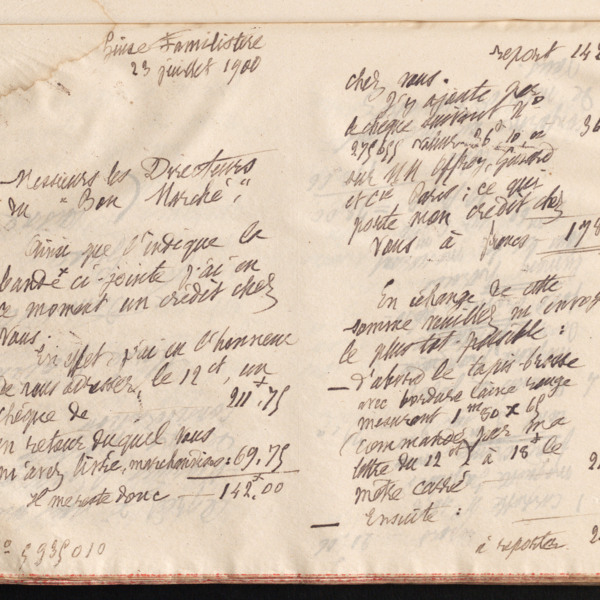 Guise Familistère
23 juillet 1900
Messieurs les Directeurs
du "Bon Marché",
Ainsi que l'indique la
bande ci-jointe j'ai en
ce moment un crédit chez
vous.
En effet j'ai eu l'honneur
de vous adresser, le 12 ct, un
chèque de 211.75
en retour duquel vous
m'avez livré, marchandises: 69.75
Il me reste donc 142.00
5935010
report 142
chez vous.
J'y ajoute par
le chèque suivant No
275655 valeur 36
sur MM Offroy, Guiard
et Cie Paris; ce qui
porte mon crédit chez
vous à francs 178
En échange de cette
somme veuillez m'envoyer
le plus tôt possible:
— D'abord le tapis-brosse
avec bordure laine rouge
mesurant 1m80 x 65
(commandé par ma
lettre du 12 ct) à 18 le
mètre carré
— Ensuite:
à reporter